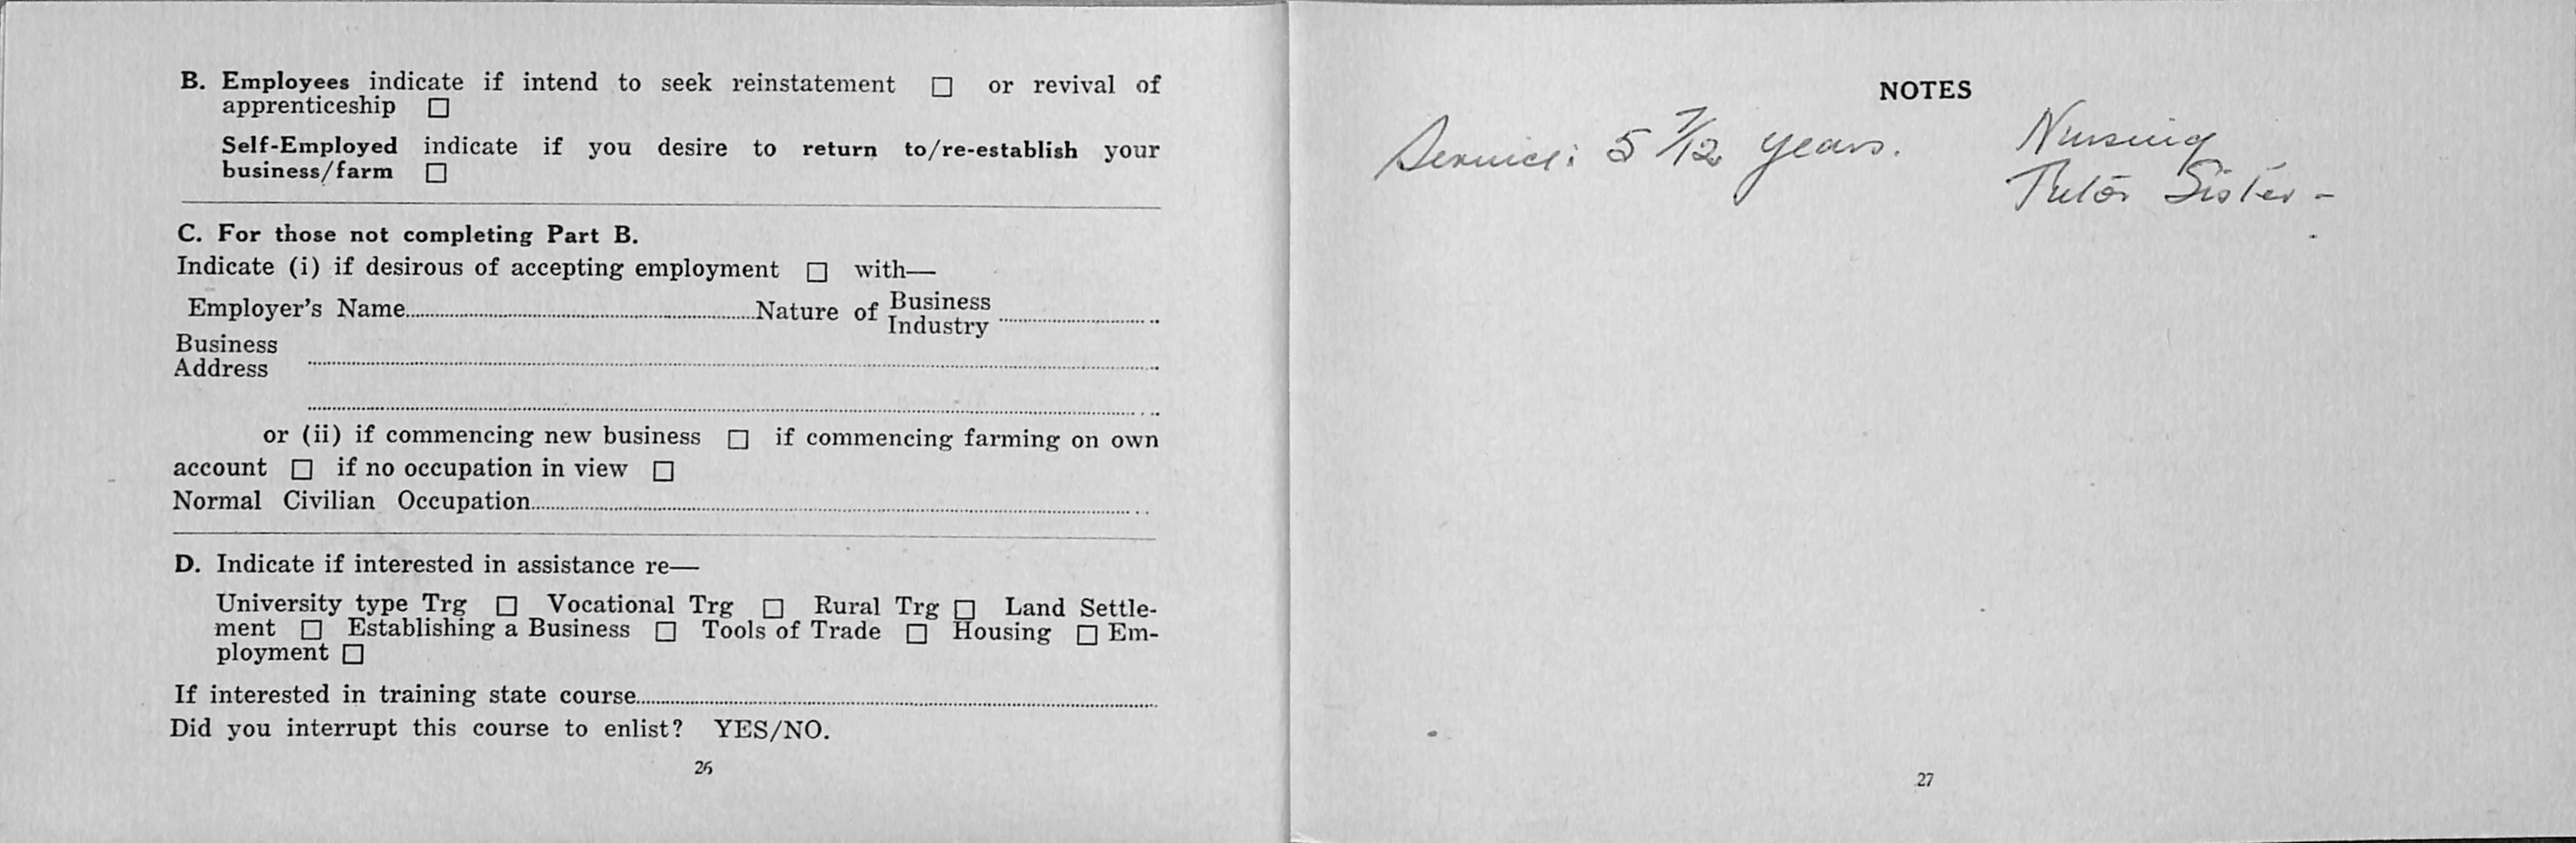 B. Employees indicate if intend to seek reinstatement □ or revival of
apprenticeship □
Self-Employed indicate if you desire to return to/re-establish your
business/farm □
C. For those not completing Part B.
Indicate (i) if desirous of accepting employment □ with—
Employer's Name..........Nature of Business
Industry ..........
Business
Address ..........
..........
or (ii) if commencing new business □ if commencing farming on own
account □ if no occupation in view □
Normal Civilian Occupation..........
D. Indicate if interested in assistance re—
University type Trg □ Vocational Trg □ Rural Trg □ Land Settle-
ment □ Establishing a Business □ Tools of Trade □ Housing □ Em-
ployment □
If interested in training state course..........
Did you interrupt this course to enlist? YES/NO.
26
NOTES
Service: 5 7/12 years. Nursing
Tutor Sister -
27